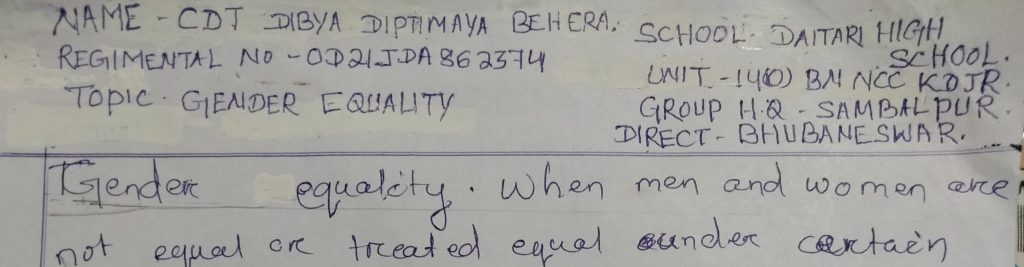 NAME - CDT DIBYA DIPTIMAYA BEHERA.
REGIMENTAL NO - OD21JDA862374
Topic. GENDER EQUALITY
SCHOOL- DAITARI HIGH
SCHOOL.
UNIT - 14(O) BN NCC KDJR.
GROUP H.Q - SAMBALPUR.
DIRECT- BHUBANESWAR.
Gender equality. When men and women are
not equal or treated equal under certain